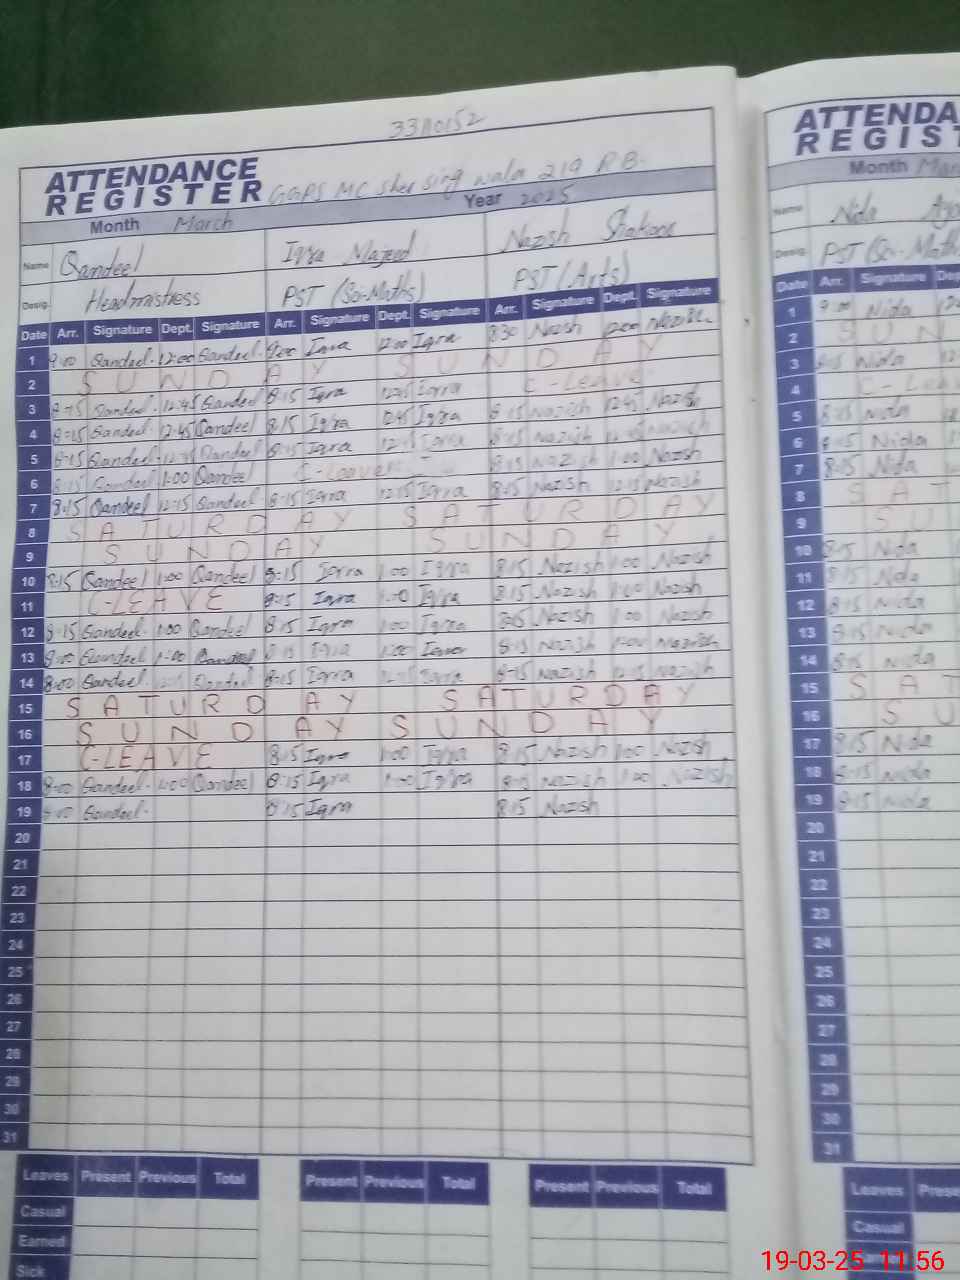 33110152
ATTENDANCE
REGISTER GGPS MC sher sing wala 219 RB.
Month March Year 2025
Name Qandeel Iqra Majeed Nazish
Desig. Headmistress PST (Sci-Maths) PST (Arts)
Date Arr. Signature Dept. Signature Arr. Signature Dept. Signature Arr. Signature Dept. Signature
1 9:00 Qandeel. 12:00 Qandeel. 9:00 Iqra 12:00 Iqra 8:30 Nazish 12:00
2 SUNDAY SUNDAY
3 8:15 Qandeel 12:45 Qandeel 8:15 Iqra 12:45 Iqra C-Leave
4 8:15 Qandeel. 12:45 Qandeel 8:15 Iqra 12:45 Iqra 8:15 Nazish 12:45 Nazish
5 8:15 Qandeel Qandeel 8:15 Iqra Iqra 8:15 Nazish Nazish
6 8:15 Qandeel 1:00 Qandeel C-Leave 8:15 Nazish 1:00 Nazish
7 8:15 Qandeel 12:15 Qandeel 8:15 Iqra 12:15 Iqra 8:15 Nazish 12:15 Nazish
8 SATURDAY SATURDAY
9 SUNDAY SUNDAY
10 8:15 Qandeel 1:00 Qandeel 8:15 Iqra 1:00 Iqra 8:15 Nazish 1:00 Nazish
11 C-LEAVE 8:15 Iqra 1:00 Iqra 8:15 Nazish 1:00 Nazish
12 8:15 Qandeel. 1:00 Qandeel 8:15 Iqra 1:00 Iqra 8:15 Nazish 1:00 Nazish
13 8:00 Qandeel 1:00 Qandeel 8:15 Iqra 1:00 Iqra 8:15 Nazish 1:00 Nazish
14 8:00 Qandeel. Qandeel 8:15 Iqra Iqra 8:15 Nazish 12:15 Nazish
15 SATURDAY SATURDAY
16 SUNDAY SUNDAY
17 C-LEAVE 8:15 Iqra 1:00 Iqra 8:15 Nazish 1:00 Nazish
18 8:00 Qandeel. 1:00 Qandeel 8:15 Iqra 1:00 Iqra 8:15 Nazish 1:00 Nazish
19 8:00 Qandeel. 8:15 Iqra 8:15 Nazish
20
21
22
23
24
25
26
27
28
29
30
31
Leaves Present Previous Total Present Previous Total Present Previous Total
Casual
Earned
Sick
ATTENDA
REGIST
Month Mar
Name Nida
Desig. PST (Sci-Math
Date Arr. Signature Dep
1 9:00 Nida
2 SUN
3 8:15 Nida 12
4 C-Leav
5 8:15 Nida
6 8:15 Nida
7 8:15 Nida
8 SAT
9 SU
10 8:15 Nida
11 8:15 Nida
12 8:15 Nida
13 8:15 Nida
14 8:15 Nida
15 SAT
16 SU
17 8:15 Nida
18 8:15 Nida
19 8:15 Nida
20
21
22
23
24
25
26
27
28
29
30
31
Leaves Prese
Casual
19-03-25 11:56